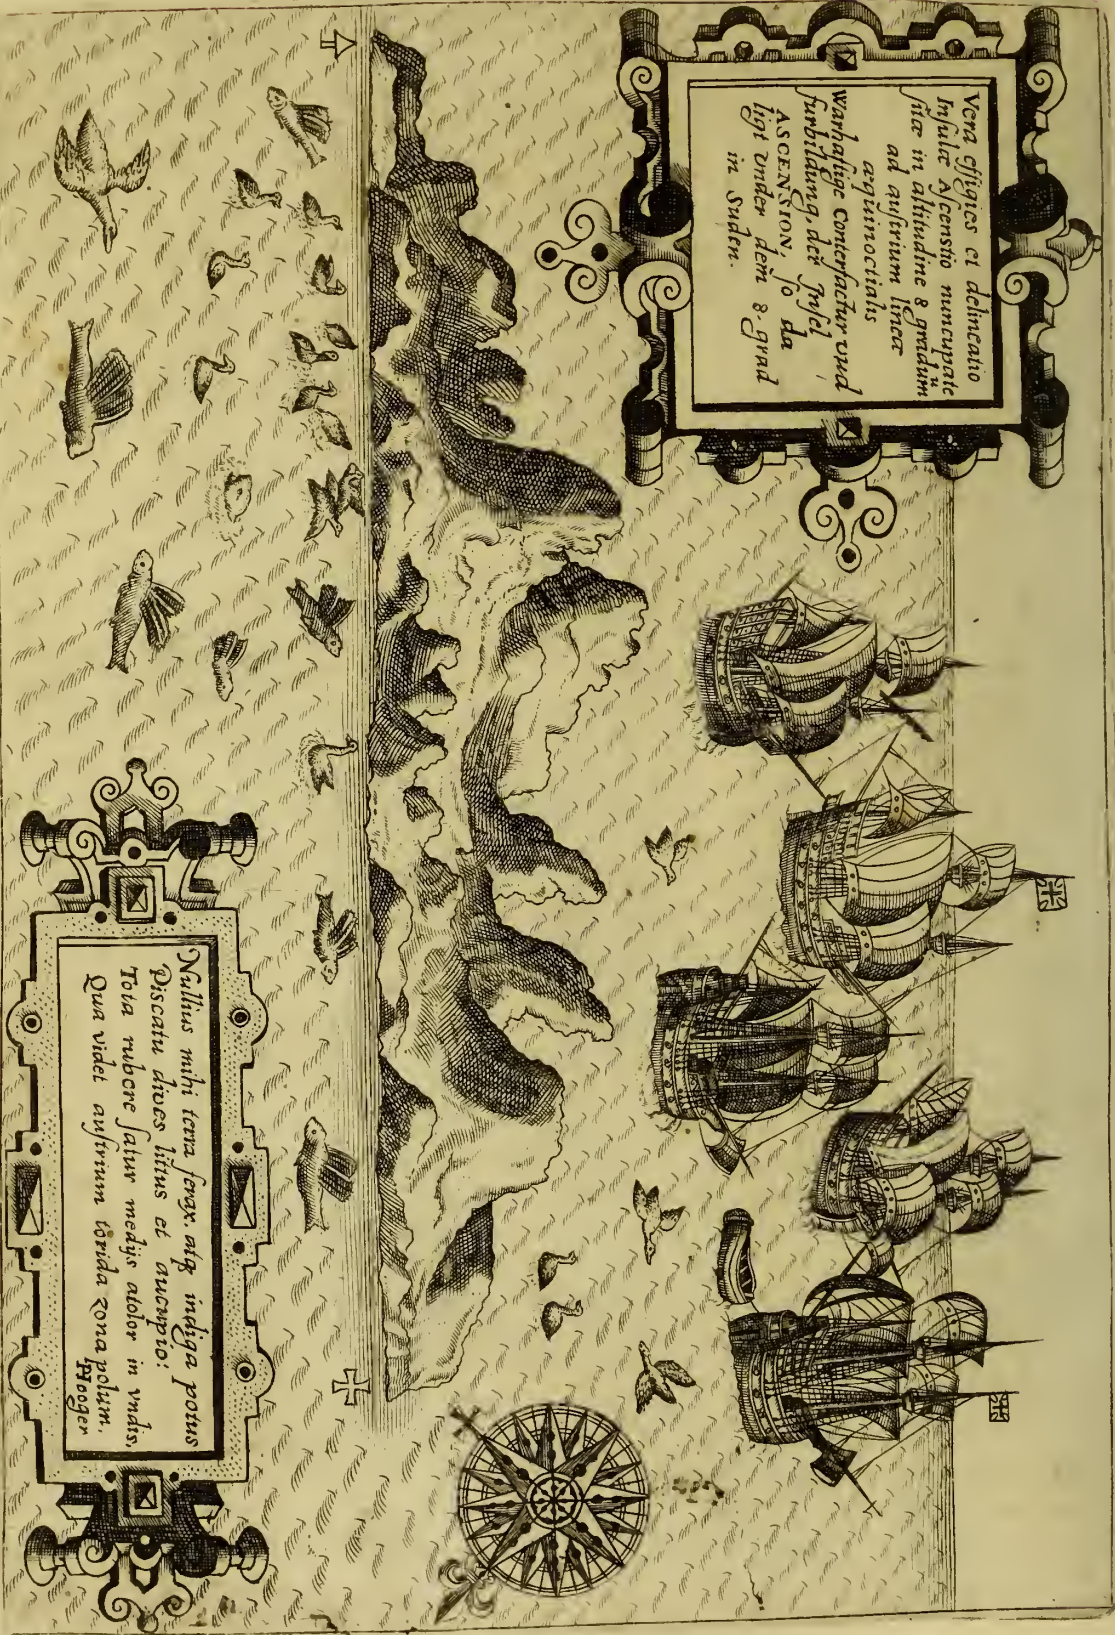 Vera effigies et delineatio
Insulæ Ascenstio nuncupate
sitæ in altitudine 8 graduum
ad austrium lineæ
æquinoctialis
Warhafftige Conterfactur vnd
furbildung, der Insel
ASCENSION, so da
ligt vnder dem 8. grad
in Suden.
Nullius mihi terra ferax. atq indiga potus
Piscatu dives littus et aucupio:
Tota rubere satur medijs adolor in vndis,
Qua videt austrium torida zona polum.
PHooger